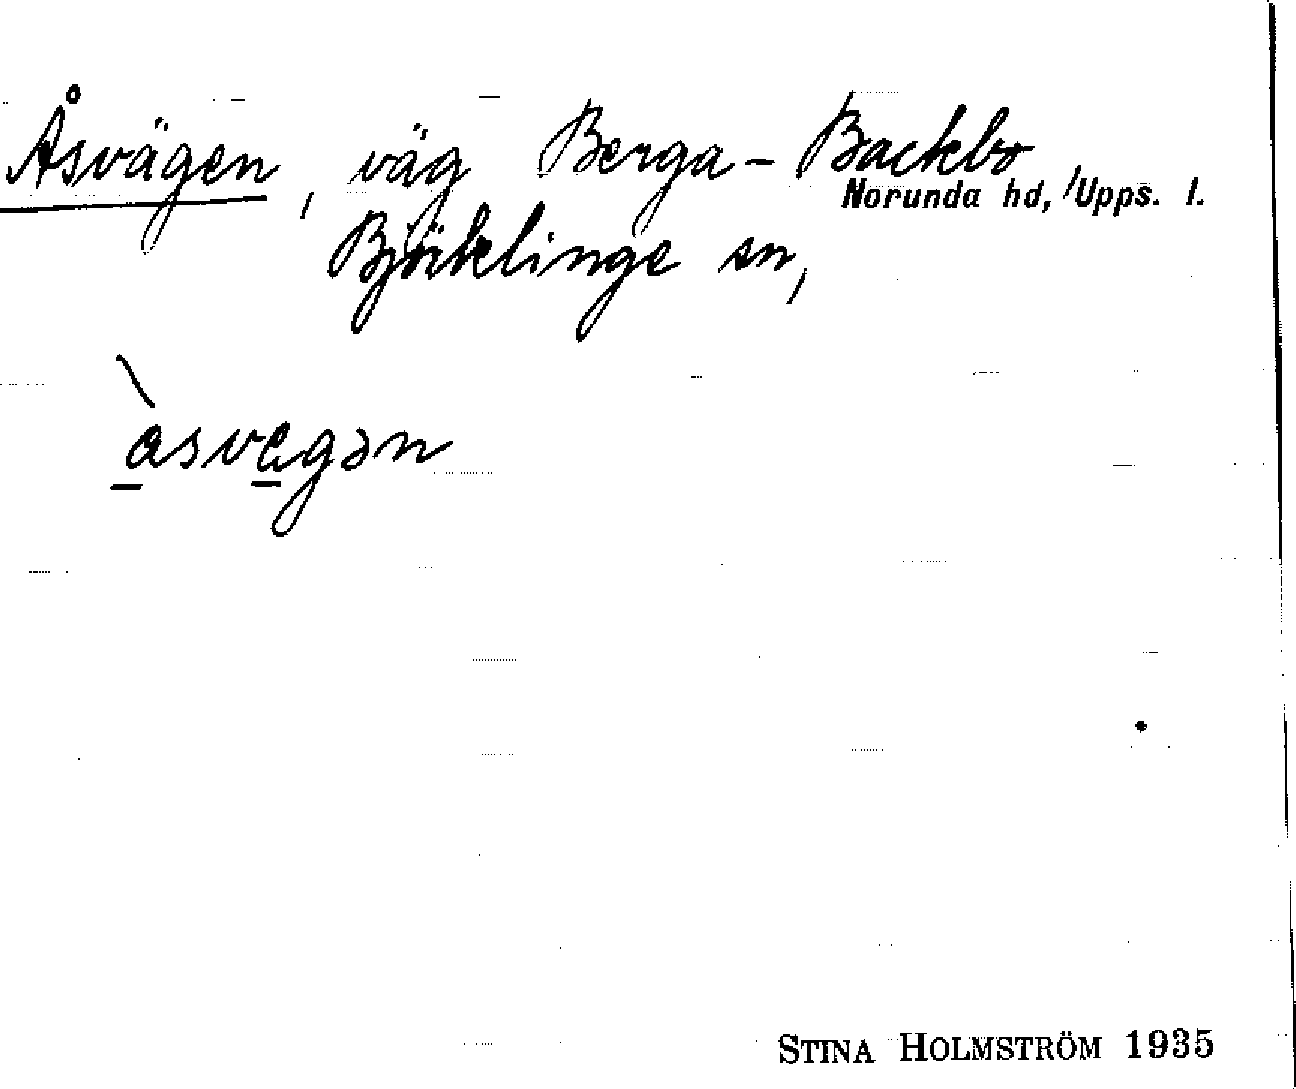 Åsvägen, väg Berga - Backbo,
Norunda hd, Upps. l.
Björklinge sn,
àsvegən
STINA HOLMSTRÖM 1935